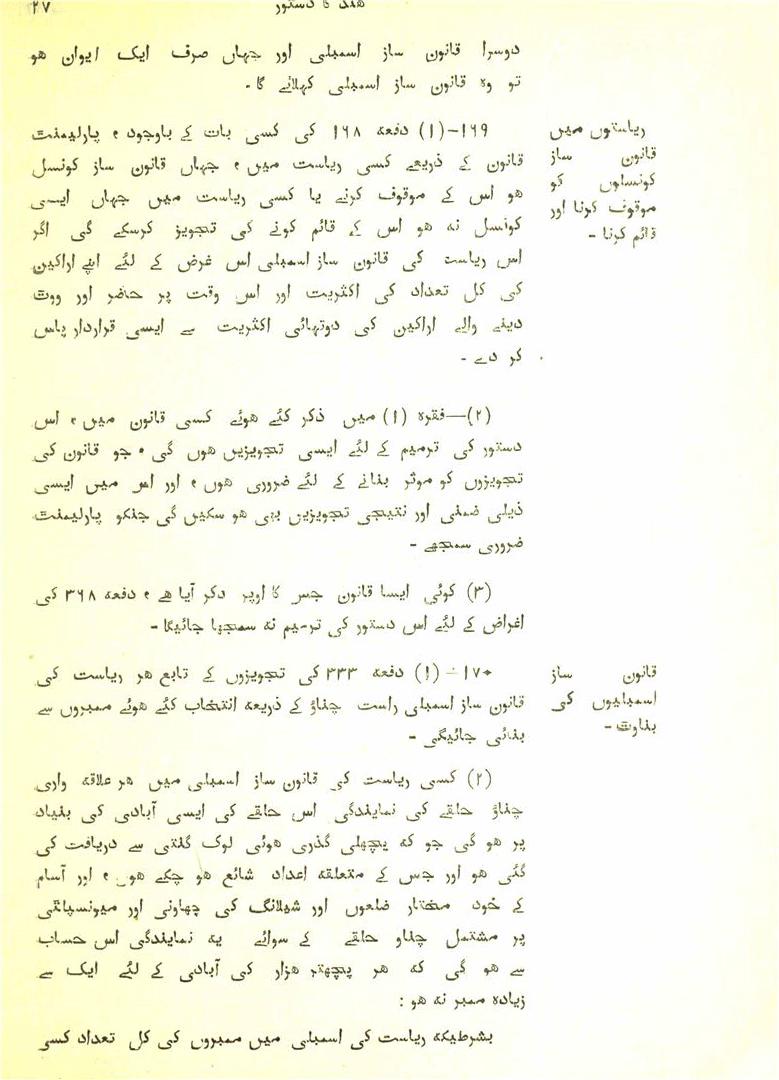 ہند کا دستور
۲۷
دوسرا قانون ساز اسمبلی اور جہاں صرف ایک ایوان ہو
تو وہ قانون ساز اسمبلی کہلائے گا۔
ریاستوں میں
قانون ساز
کونسلوں کو
موقوف کرنا اور
قائم کرنا ۔
۱۶۹–(۱) دفعہ ۱۶۸ کی کسی بات کے باوجود ، پارلیمنٹ
قانون کے ذریعے کسی ریاست میں ، جہاں قانون ساز کونسل
ہو اس کے موقوف کرنے یا کسی ریاست میں جہاں ایسی
کونسل نہ ہو اس کے قائم کونے کی تجویز کرسکے گی اگر
اس ریاست کی قانون ساز اسمبلی اس غرض کے لئے اپنے اراکین
کی کل تعداد کی اکثریت اور اس وقت پر حاضر اور ووٹ
دینے والے اراکین کی دوتہائی اکثریت سے ایسی قراردار پاس
کر دے ۔
(۲)—فقرہ (۱) میں ذکر کئے ہوئے کسی قانون میں ، اس
دستور کی ترمیم کے لئے ایسی تجویزیں ہوں گی ، جو قانون کی
تجویزوں کو موثر بنانے کے لئے ضروری ہوں ، اور اس میں ایسی
ذیلی ضمنی اور نتیجی تجویزیں بھی ہو سکیں گی جنکو پارلیمنٹ
ضروری سمجھے ۔
(۳) کوئی ایسا قانون جس کا اوپر ذکر آیا ہے ، دفعہ ۳۶۸ کی
اغراض کے لئے اس دستور کی ترمیم نہ سمجھا جائیگا۔
قانون ساز
اسمبلیوں کی
بناوٹ۔
*۱۷۰–(۱) دفعہ ۳۳۳ کی تجویزوں کے تابع ہر ریاست کی
قانون ساز اسمبلی راست چناؤ کے ذریعہ انتخاب کئے ہوئے ممبروں سے
بنائی جائیگی ۔
(۲) کسی ریاست کی قانون ساز اسمبلی میں ہر علاقہ واری
چناؤ حلقے کی نمایندگی اس حلقے کی ایسی آبادی کی بنیاد
پر ہو گی جو کہ پچھلی گذری ہوئی لوک گنتی سے دریافت کی
گئی ہو اور جس کے متعلقہ اعداد شائع ہو چکے ہوں ، اور آسام
کے خود مختار ضلعوں اور شیلانگ کی چھاونی اور میونسپالٹی
پر مشتمل چناو حلقے کے سوائے یہ نمایندگی اس حساب
سے ہو گی کہ ہر پچھتر ہزار کی آبادی کے لئے ایک سے
زیادہ ممبر نہ ہو :
بشرطیکہ ریاست کی اسمبلی میں ممبروں کی کل تعداد کسی